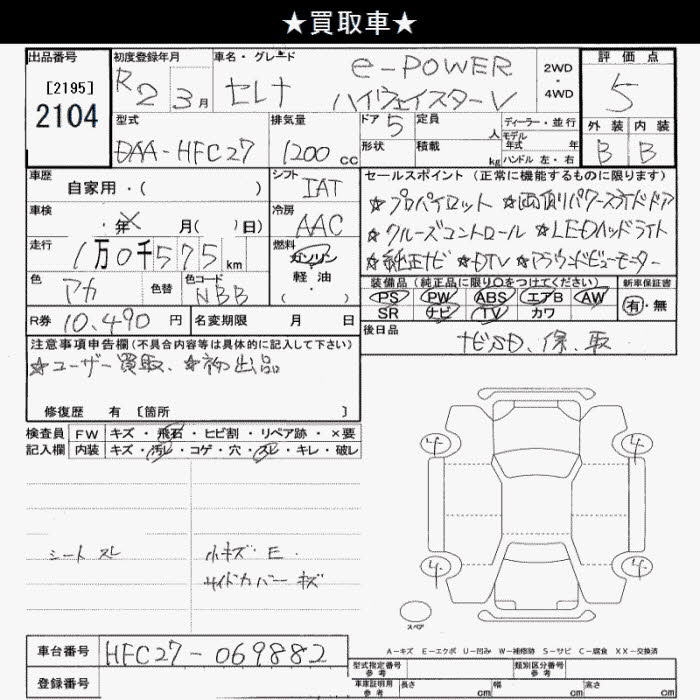 ★買取車★
出品番号 初度登録年月 車名・グレード 評価点
[2195]
2104
R2 3月 セレナ e-POWER ハイウェイスターV 2WD・4WD 5
型式 排気量 ドア 5 定員 人 ディーラー・並行 外装 内装
DAA-HFC27 1200cc 形状 積載 kg モデル年式 年 ハンドル 左・右 B B
車歴 自家用・( ) シフト IAT セールスポイント(正常に機能するものに限ります)
車検 年 月( 日) 冷房 AAC ★プロパイロット ★両側パワースライドドア
★クルーズコントロール ★LEDヘッドライト
走行 1万0千575km 燃料 ガソリン 軽油・ ★純正ナビ ★DTV ★アラウンドビューモニター
色 アカ 色替 色コード NBB 装備品(純正品に限り○をつけてください) 新車保証書
PS PW ABS エアB AW 有・無
SR ナビ TV カワ
R券 10,490円 名変期限 月 日 後日品
ナビSD、保、取
注意事項申告欄(不具合内容等は具体的に記入して下さい)
★ユーザー買取、★初出品
修復歴 有 [箇所 ]
検査員 FW キズ・飛石・ヒビ割・リペア跡・×要
記入欄 内装 キズ・汚レ・コゲ・穴・スレ・キレ・破レ
シートスレ 小キズ・E
サイドカバーキズ
4 4
4 4
スペア
A-キズ E-エクボ U-凹み W-補修跡 S-サビ C-腐食 XX-交換済
車台番号 HFC27-069882
型式指定番号 参考 類別区分番号 参考
登録番号 車庫証明用 参考 長さ cm 幅 cm 高さ cm